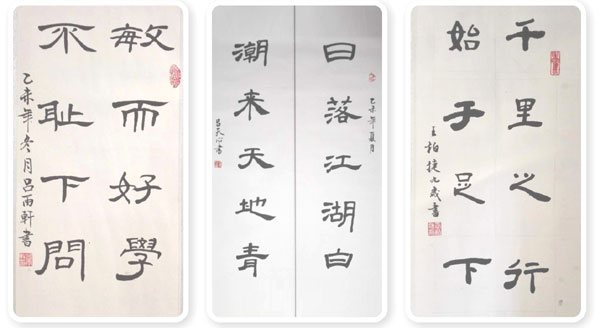 敏而好學
不耻下問
乙未年冬月呂雨軒書
日落江湖白
乙未年夏月
潮来天地青
呂天心書
千里之行
始于足下
王柏捷九歲書